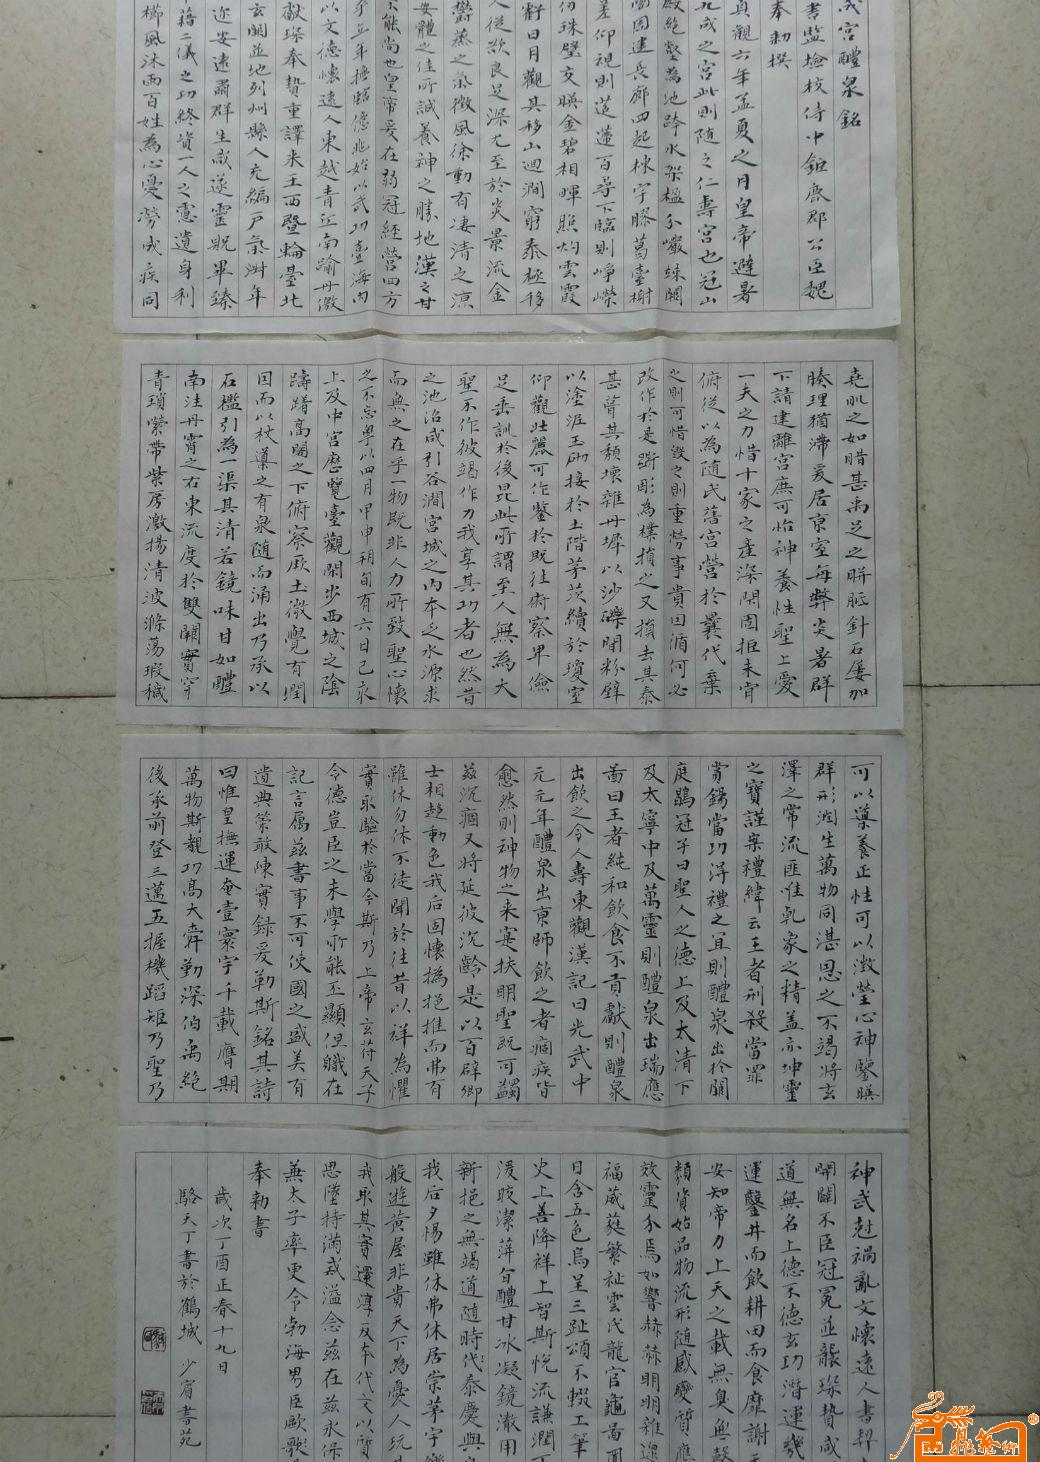 成宮醴泉銘
書監檢校侍中鉅鹿郡公臣魏
奉勅撰
貞觀六年孟夏之月皇帝避暑
九成之宮此則隨之仁壽宮也冠山
殿絶壑為池跨水架楹分巖竦闕
高閣周建長廊四起棟宇膠葛臺榭
差仰視則迢遰百尋下臨則崢嶸
仞珠璧交暎金碧相暉照灼雲霞
虧日月觀其移山迴澗窮泰極侈
人從欲良足深尤至於炎景流金
鬱蒸之氣微風徐動有淒清之涼
安體之佳所誠養神之勝地漢之甘
不能尚也皇帝爰在弱冠經營四方
乎立年撫臨億兆始以武功壹海内
以文德懷遠人東越青丘南踰丹徼
獻琛奉贄重譯来王西曁輪臺北
玄闕並地列州縣人充編戶氣淑年
迩安遠肅群生咸遂靈貺畢臻
藉二儀之功終資一人之慮遺身利
櫛風沐雨百姓為心憂勞成疾同
堯肌之如腊甚禹足之胼胝針石屢加
腠理猶滯爰居京室每弊炎暑群
下請建離宮庶可怡神養性聖上愛
一夫之力惜十家之產深閉固拒未肯
俯從以為隨氏舊宮營於曩代棄
之則可惜毀之則重勞事貴因循何必
改作於是斲彫為樸損之又損去其泰
甚葺其頹壞雜丹墀以沙礫間粉壁
以塗泥玉砌接於土階茅茨續於瓊室
仰觀壯麗可作鑒於既往俯察卑儉
足垂訓於後昆此所謂至人無為大
聖不作彼竭作力我享其功者也然昔
之池沼咸引谷澗宮城之内本乏水源求
而無之在乎一物既非人力所致聖心懷
之不忘粵以四月甲申朔旬有六日己亥
上及中宮歷覽臺觀閑步西城之陰
躊躇高閣之下俯察厥土微覺有潤
因而以杖導之有泉隨而涌出乃承以
石檻引為一渠其清若鏡味甘如醴
南注丹霄之右東流度於雙闕貫穿
青瑣縈帶紫房激揚清波滌蕩瑕穢
可以導養正性可以澂瑩心神鑒暎
群形潤生萬物同湛恩之不竭將玄
澤之常流匪唯乾象之精盖亦坤靈
之寶謹案禮緯云王者刑殺當罪
賞錫當功得禮之宜則醴泉出於闕
庭鶡冠子曰聖人之德上及太清下
及太寧中及萬靈則醴泉出瑞應
圖曰王者純和飲食不貢獻則醴泉
出飲之令人壽東觀漢記曰光武中
元元年醴泉出京師飲之者痼疾皆
愈然則神物之来寔扶明聖既可蠲
兹沉痼又將延彼遐齡是以百辟卿
士相趍動色我后固懷撝挹推而弗有
雖休勿休不徒聞於往昔以祥為懼
實取驗於當今斯乃上帝玄符天子
令德豈臣之末學所能丕顯但職在
記言屬兹書事不可使國之盛美有
遺典策敢陳實録爰勒斯銘其詩
曰惟皇撫運奄壹寰宇千載膺期
萬物斯覩功高大舜勤深伯禹絶
後承前登三邁五握機蹈矩乃聖乃
神武尅禍亂文懷遠人書契
開闢不臣冠冕並襲琛贄咸
道無名上德不德玄功潛運幾
運鑿井而飲耕田而食靡謝
安知帝力上天之載無臭無聲
類資始品物流形隨感變質應
效靈介焉如響赫赫明明雜遝
福葳蕤繁祉雲氏龍官龜圖
日含五色烏呈三趾頌不輟工筆
史上善降祥上智斯悅流謙潤
湲皎潔蓱旨醴甘冰凝鏡澈用
新挹之無竭道隨時泰慶與
我后夕惕雖休弗休居崇茅宇樂
般遊黃屋非貴天下為憂人玩
我取其實還淳反本代文以質
思墜持滿戒溢念兹在兹永保
兼太子率更令勃海男臣歐
奉勅書
歲次丁酉正春十九日
駱天丁書於鶴城 少賓書苑